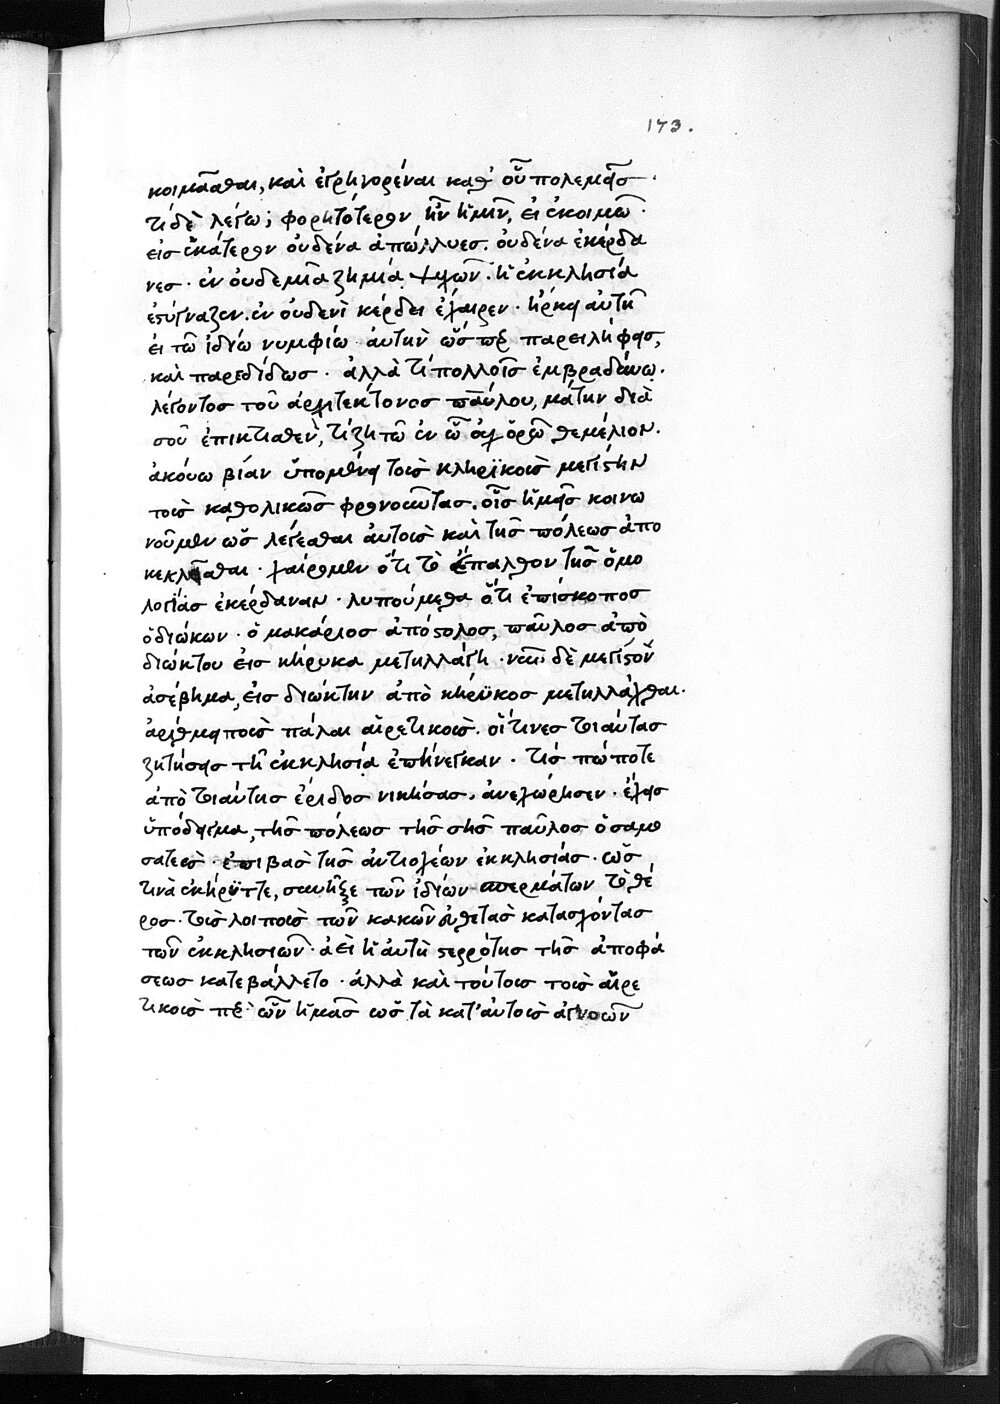 173.
κοιμᾶσθαι, καὶ ἐγρηγορέναι καθ' οὓ πολεμεῖς ·
τί δὲ λέγω; φορητότερον ἦν ἡμῖν, εἰ ἐκοιμῶ ·
εἰς ἑκάτερον οὐδένα ἀπώλλυες. οὐδένα ἐκέρδα
νες · ἐν οὐδεμία ζημία ψυχῶν · ἡ ἐκκλησία
ἐστύγναζεν. ἐν οὐδενὶ κέρδει ἔχαιρεν · ἤρκει αὐτῆ
εἰ τῶ ἰδίω νυμφίω αὐτὴν ὥσπερ παρειλήφεις,
καὶ παρεδίδως · ἀλλὰ τί πολλοῖς ἐμβραδύνω.
λέγοντος τοῦ ἀρχιτέκτονος παύλου, μάτην διὰ
σοῦ ἐπικτισθὲν, τί ζητῶ ἐν ὧ οὐχ ὁρῶ θεμέλιον.
ἀκούω βίαν ὑπομένειν τοῖς κληρϊκοῖς μεγίστην
τοῖς καθολικῶς φρονοῦντας. οἷς ἡμεῖς κοινω
νοῦμεν ὡς λέγεσθαι αὐτοῖς καὶ τῆς πόλεως ἀπο
κεκλεῖσθαι · χαίρομεν ὅτι τὸ ἔπαλθον τῆς ὁμο
λογίας ἐκέρδαναν · λυπούμεθα ὅτι ἐπίσκοπος
ὁ διώκων · ὁ μακάριος ἀπόστολος, παῦλος ἀπὸ
διώκτου εἰς κήρυκα μετηλλάγη · νῦν δὲ μεγίστου
ἀσέβημα, εἰς διώκτην ἀπὸ κήρϋκος μετηλλάχθαι.
ἀρίθμει ποῖς πάλαι αἱρετικοῖς. οἵτινες τοιαύτας
ζητήσεις τῆ ἐκκλησία ἐπήνεγκαν · τίς πώποτε
ἀπὸ τοιαύτης ἔριδος νικήσας, ἀνεχώρησεν · ἔχεις
ὑπόδειγμα, τῆς πόλεως τῆς σῆς παῦλος ὁ σαμο
σατεὺς · ἐπιβὰς τῆς ἀντιοχέων ἐκκλησίας · ὥς
τινὰ ἐκήρϋττε, συνῆξε τῶν ἰδίων σπερμάτων τὸ θέ
ρος · τοῖς λοιποῖς τῶν κακῶν εὑρετὰς κατασχόντας
τῶν ἐκκλησιῶν · ἀεὶ ἡ αὐτὴ στερρότης τῆς ἀποφά
σεως κατεβάλλετο · ἀλλὰ καὶ τούτοις τοῖς αἱρε
τικοῖς περὶ ὧν ἡμᾶς ὡς τὰ κατ' αὐτοῖς ἀγνοῶν